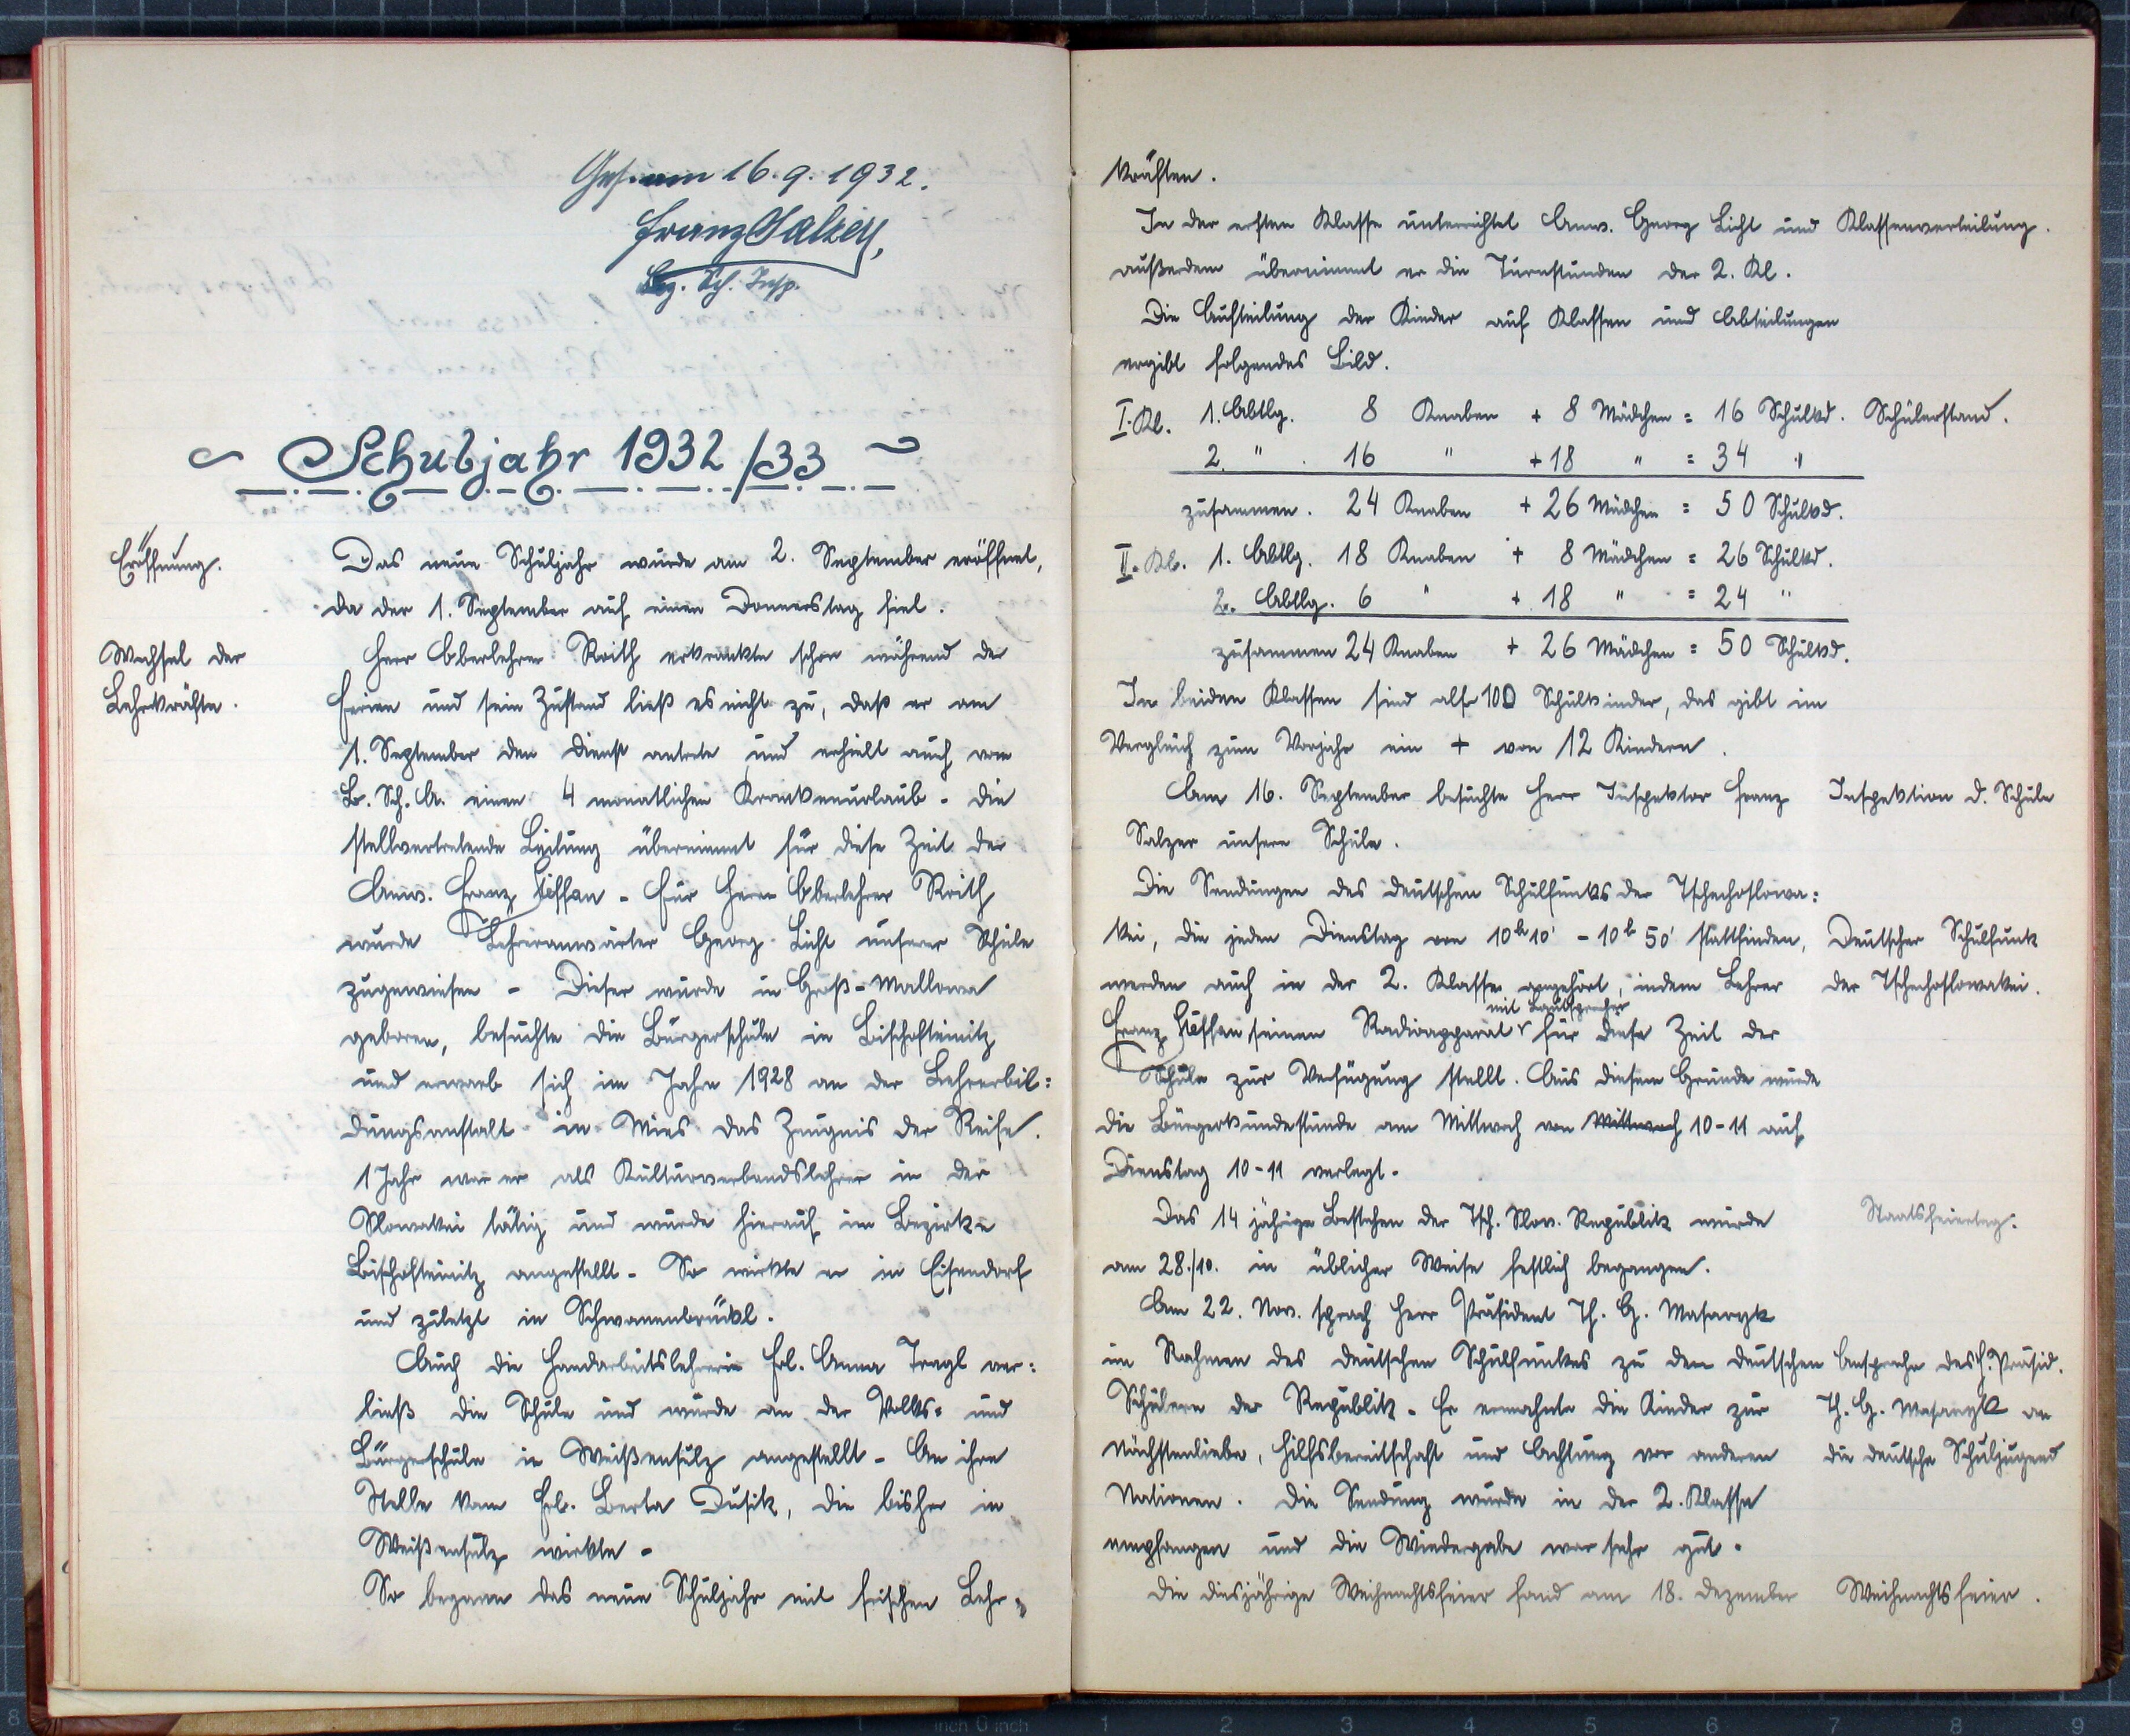 Ges. am 16.9.1932.
Franz Salzer,
Bez. Sch. Insp.
~ Schuljahr 1932/33 ~
Eröffnung.
Das neue Schuljahr wurde am 2. September eröffnet,
da der 1. September auf einen Donnerstag fiel.
Wechsel der
Lehrkräfte.
Herr Oberlehrer Roith erkrankte schon während der
Ferien und sein Zustand ließ es nicht zu, daß er am
1. September den Dienst antrete und erhielt auch vom
B. Sch. A. einen 4 monatlichen Krankenurlaub. Die
stellvertretende Leitung übernimmt für diese Zeit der
Anw. Franz Steffan. Für Herrn Oberlehrer Roith
wurde Lehreranwärter Georg Licht unserer Schule
zugewiesen. Dieser wurde in Groß-Mallowa
geboren, besuchte die Bürgerschule in Bischofteinitz
und erwarb sich im Jahre 1928 an der Lehrerbil:
dungsanstalt in Mies das Zeugnis der Reife.
1 Jahr war er als Kulturverbandslehrer in der
Slowakei tätig und wurde hierauf im Bezirke
Bischofteinitz angestellt. So wirkte er in Eisendorf
und zuletzt in Schwanenbrückl.
Auch die Handarbeitslehrerin Frl. Anna Tragl ver:
ließ die Schule und wurde an der Volks- und
Bürgerschule in Weißensulz angestellt. An ihre
Stelle kam Frl. Berta Dusik, die bisher in
Weißensulz wirkte.
So begann das neue Schuljahr mit frischen Lehr-
kräften.
In der ersten Klasse unterrichtet Anw. Georg Licht und
Klassenverteilung.
außerdem übernimmt er die Turnstunden der 2. Kl.
Die Aufteilung der Kinder auf Klassen und Abteilungen
ergibt folgendes Bild.
I. Kl. 1. Abtlg. 8 Knaben + 8 Mädchen = 16 Schulkd.
Schülerstand.
2. " . 16 " + 18 " = 34 "
zusammen. 24 Knaben + 26 Mädchen = 50 Schulkd.
II. Kl. 1. Abtlg. 18 Knaben + 8 Mädchen = 26 Schulkd.
2. Abtlg. 6 " + 18 " = 24 "
zusammen 24 Knaben + 26 Mädchen = 50 Schulkd.
In beiden Klassen sind also 100 Schulkinder, das gibt im
Vergleich zum Vorjahr ein + von 12 Kindern.
Am 16. September besuchte Herr Inspektor Franz
Inspektion d. Schule
Salzer unsere Schule.
Die Sendungen des deutschen Schulfunks der Tschechoslowa:
kei, die jeden Dienstag von 10h 10' - 10h 50' stattfinden,
Deutscher Schulfunk
werden auch in der 2. Klasse angehört, indem Lehrer
der Tschechoslowakei.
mit Lautsprecher
Franz Steffan seinen Radioapparat für diese Zeit der
Schule zur Verfügung stellt. Aus diesem Grunde wurde
die Bürgerkundestunde am Mittwoch von Mittwoch 10-11 auf
Dienstag 10-11 verlegt.
Das 14 jährige Bestehen der Tsch. Slow. Republik wurde
Staatsfeiertag.
am 28./10. in üblicher Weise festlich begangen.
Am 22. Nov. sprach Herr Präsident Th. G. Masaryk
im Rahmen des deutschen Schulfunkes zu den deutschen
Ansprache des H. Präsid.
Schülern der Republik. Er ermahnte die Kinder zur
Th. G. Masaryk an
Nächstenliebe, Hilfsbereitschaft und Achtung vor anderen
die deutsche Schuljugend
Nationen. Die Sendung wurde in der 2. Klasse
empfangen und die Wiedergabe war sehr gut.
Die diesjährige Weihnachtsfeier fand am 18. Dezember
Weihnachtsfeier.
8 2 1 inch 0 inch 1 2 3 4 5 6 7 8 9